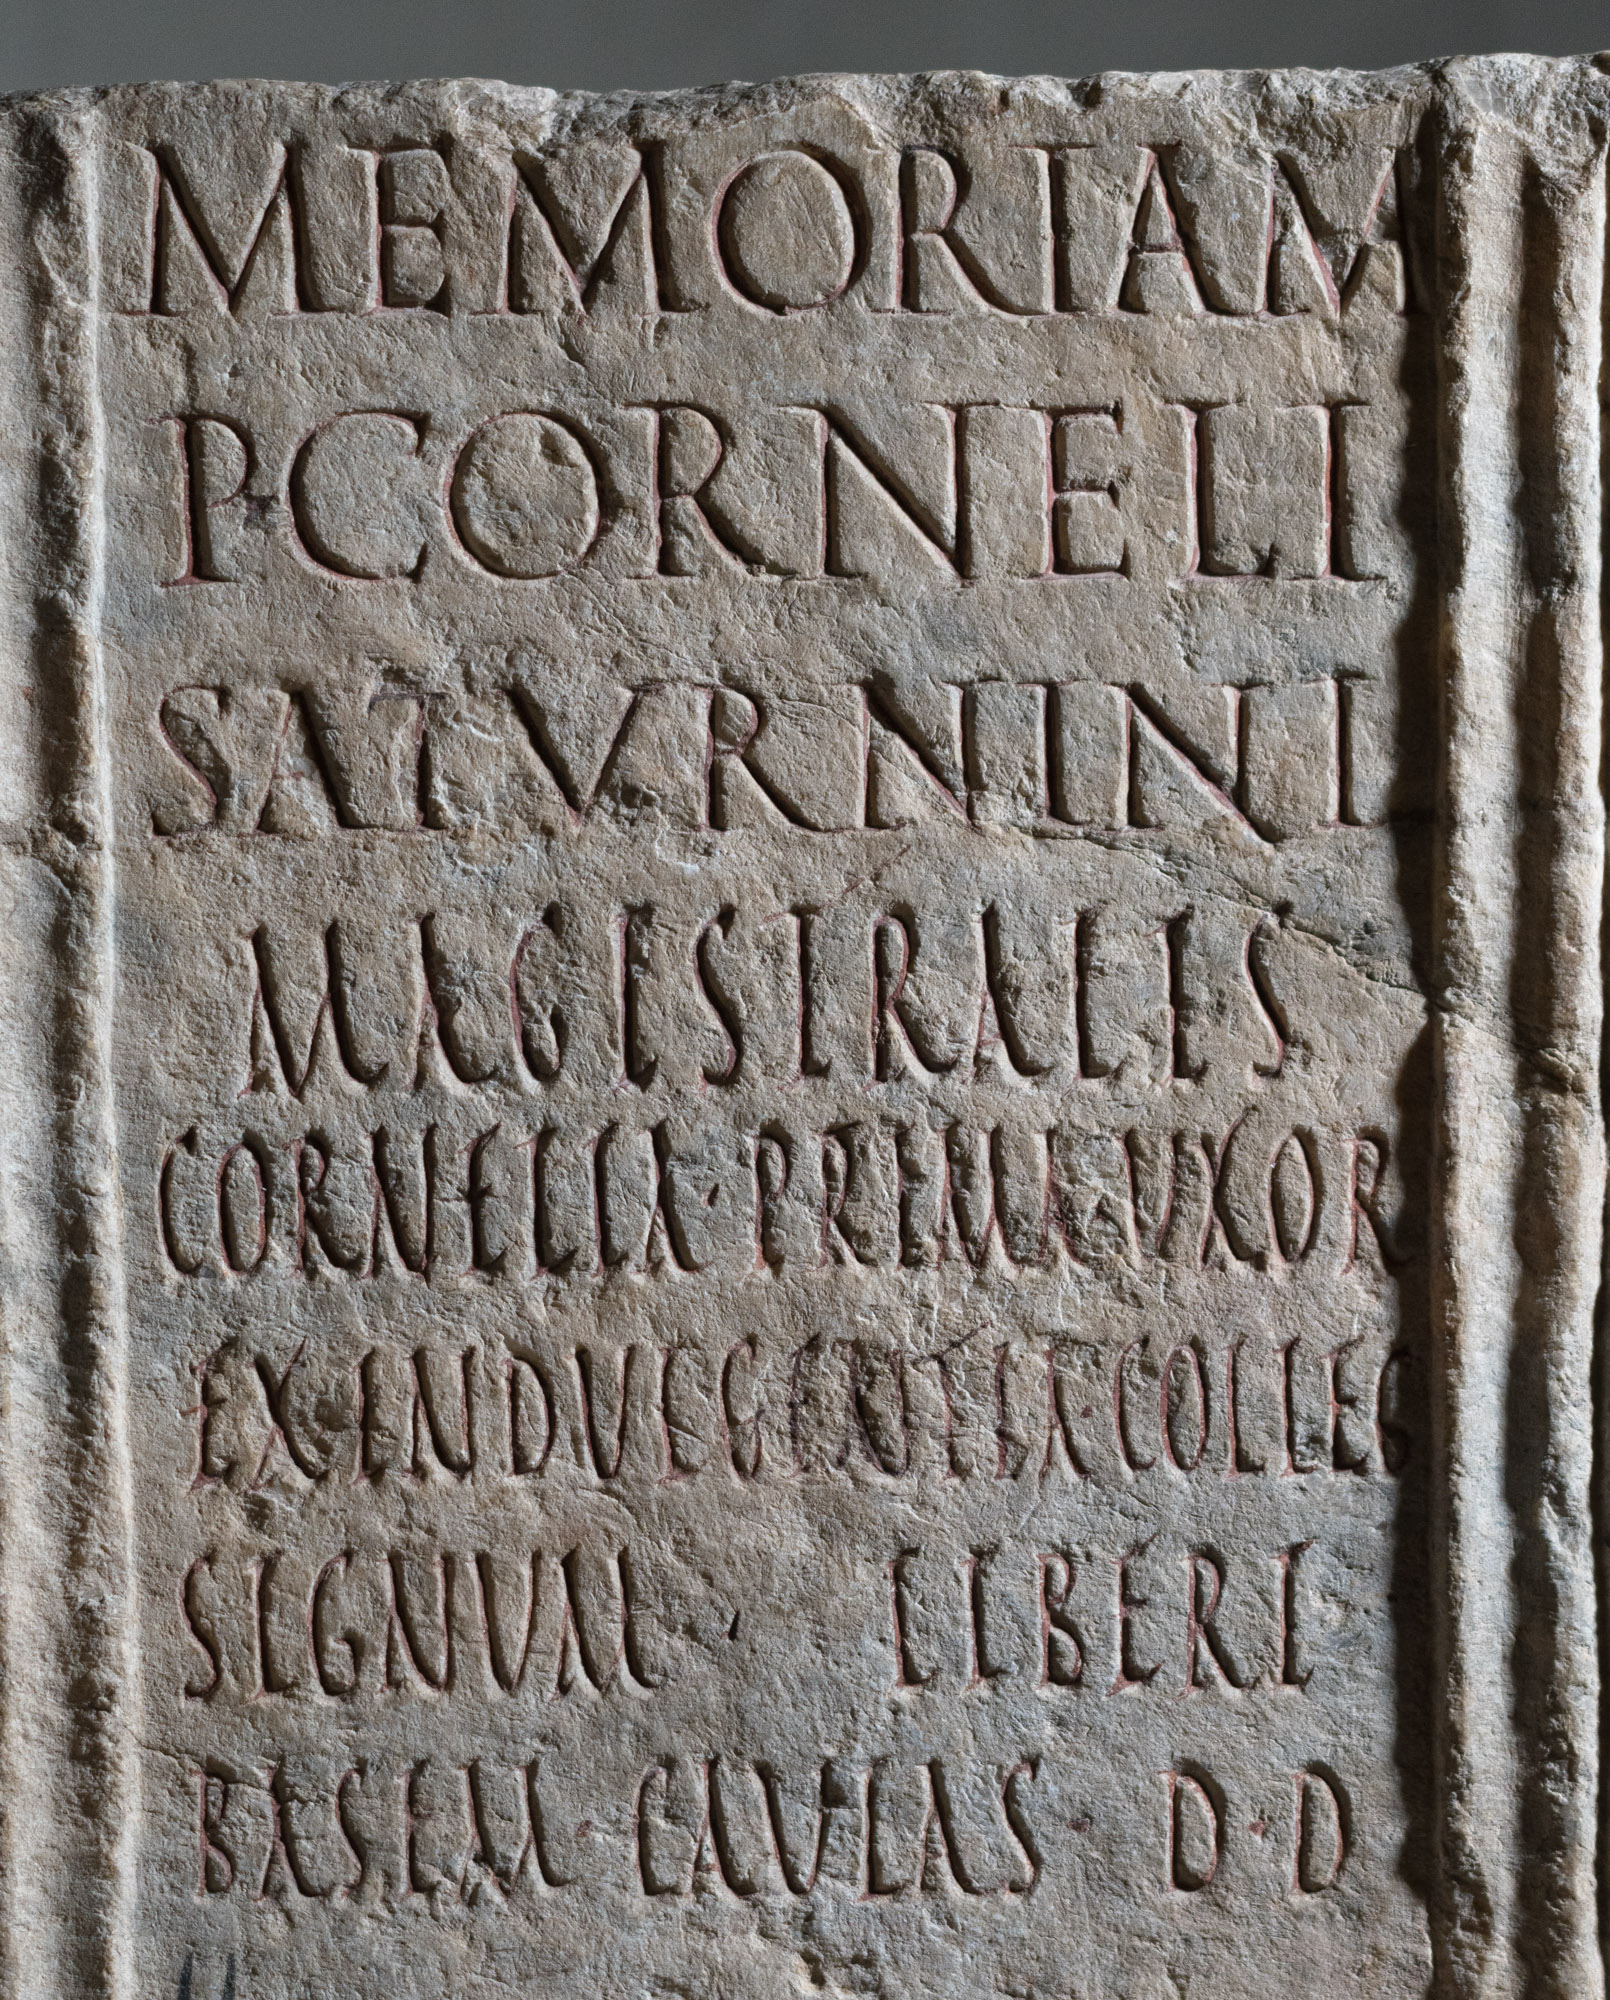 MEMORIAM
P·CORNELI
SATVRNINI
MAGISTRALIS
CORNELIA·PRIMA·VXOR
EX·INDVLGENTIA·COLLEG
SIGNVM · LIBERI
BASEM·CAVLAS·D·D